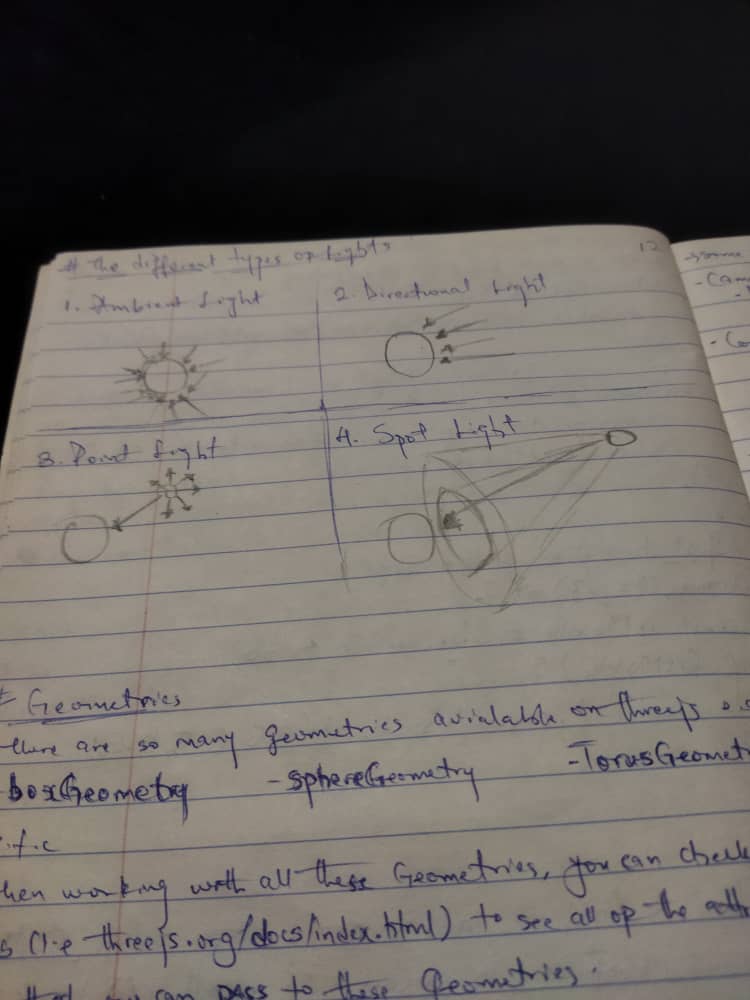 # The different types of Lights
12
1. Ambient Light
2. Directional Light
3. Point Light
4. Spot Light
Geometries
there are so many geometries avialable on threejs
boxGeometry - sphereGeometry - TorusGeomet
hen working with all these Geometries, you can check
(i.e threejs.org/docs/index.html) to see all of the
can pass to these Geometries.
- Cam